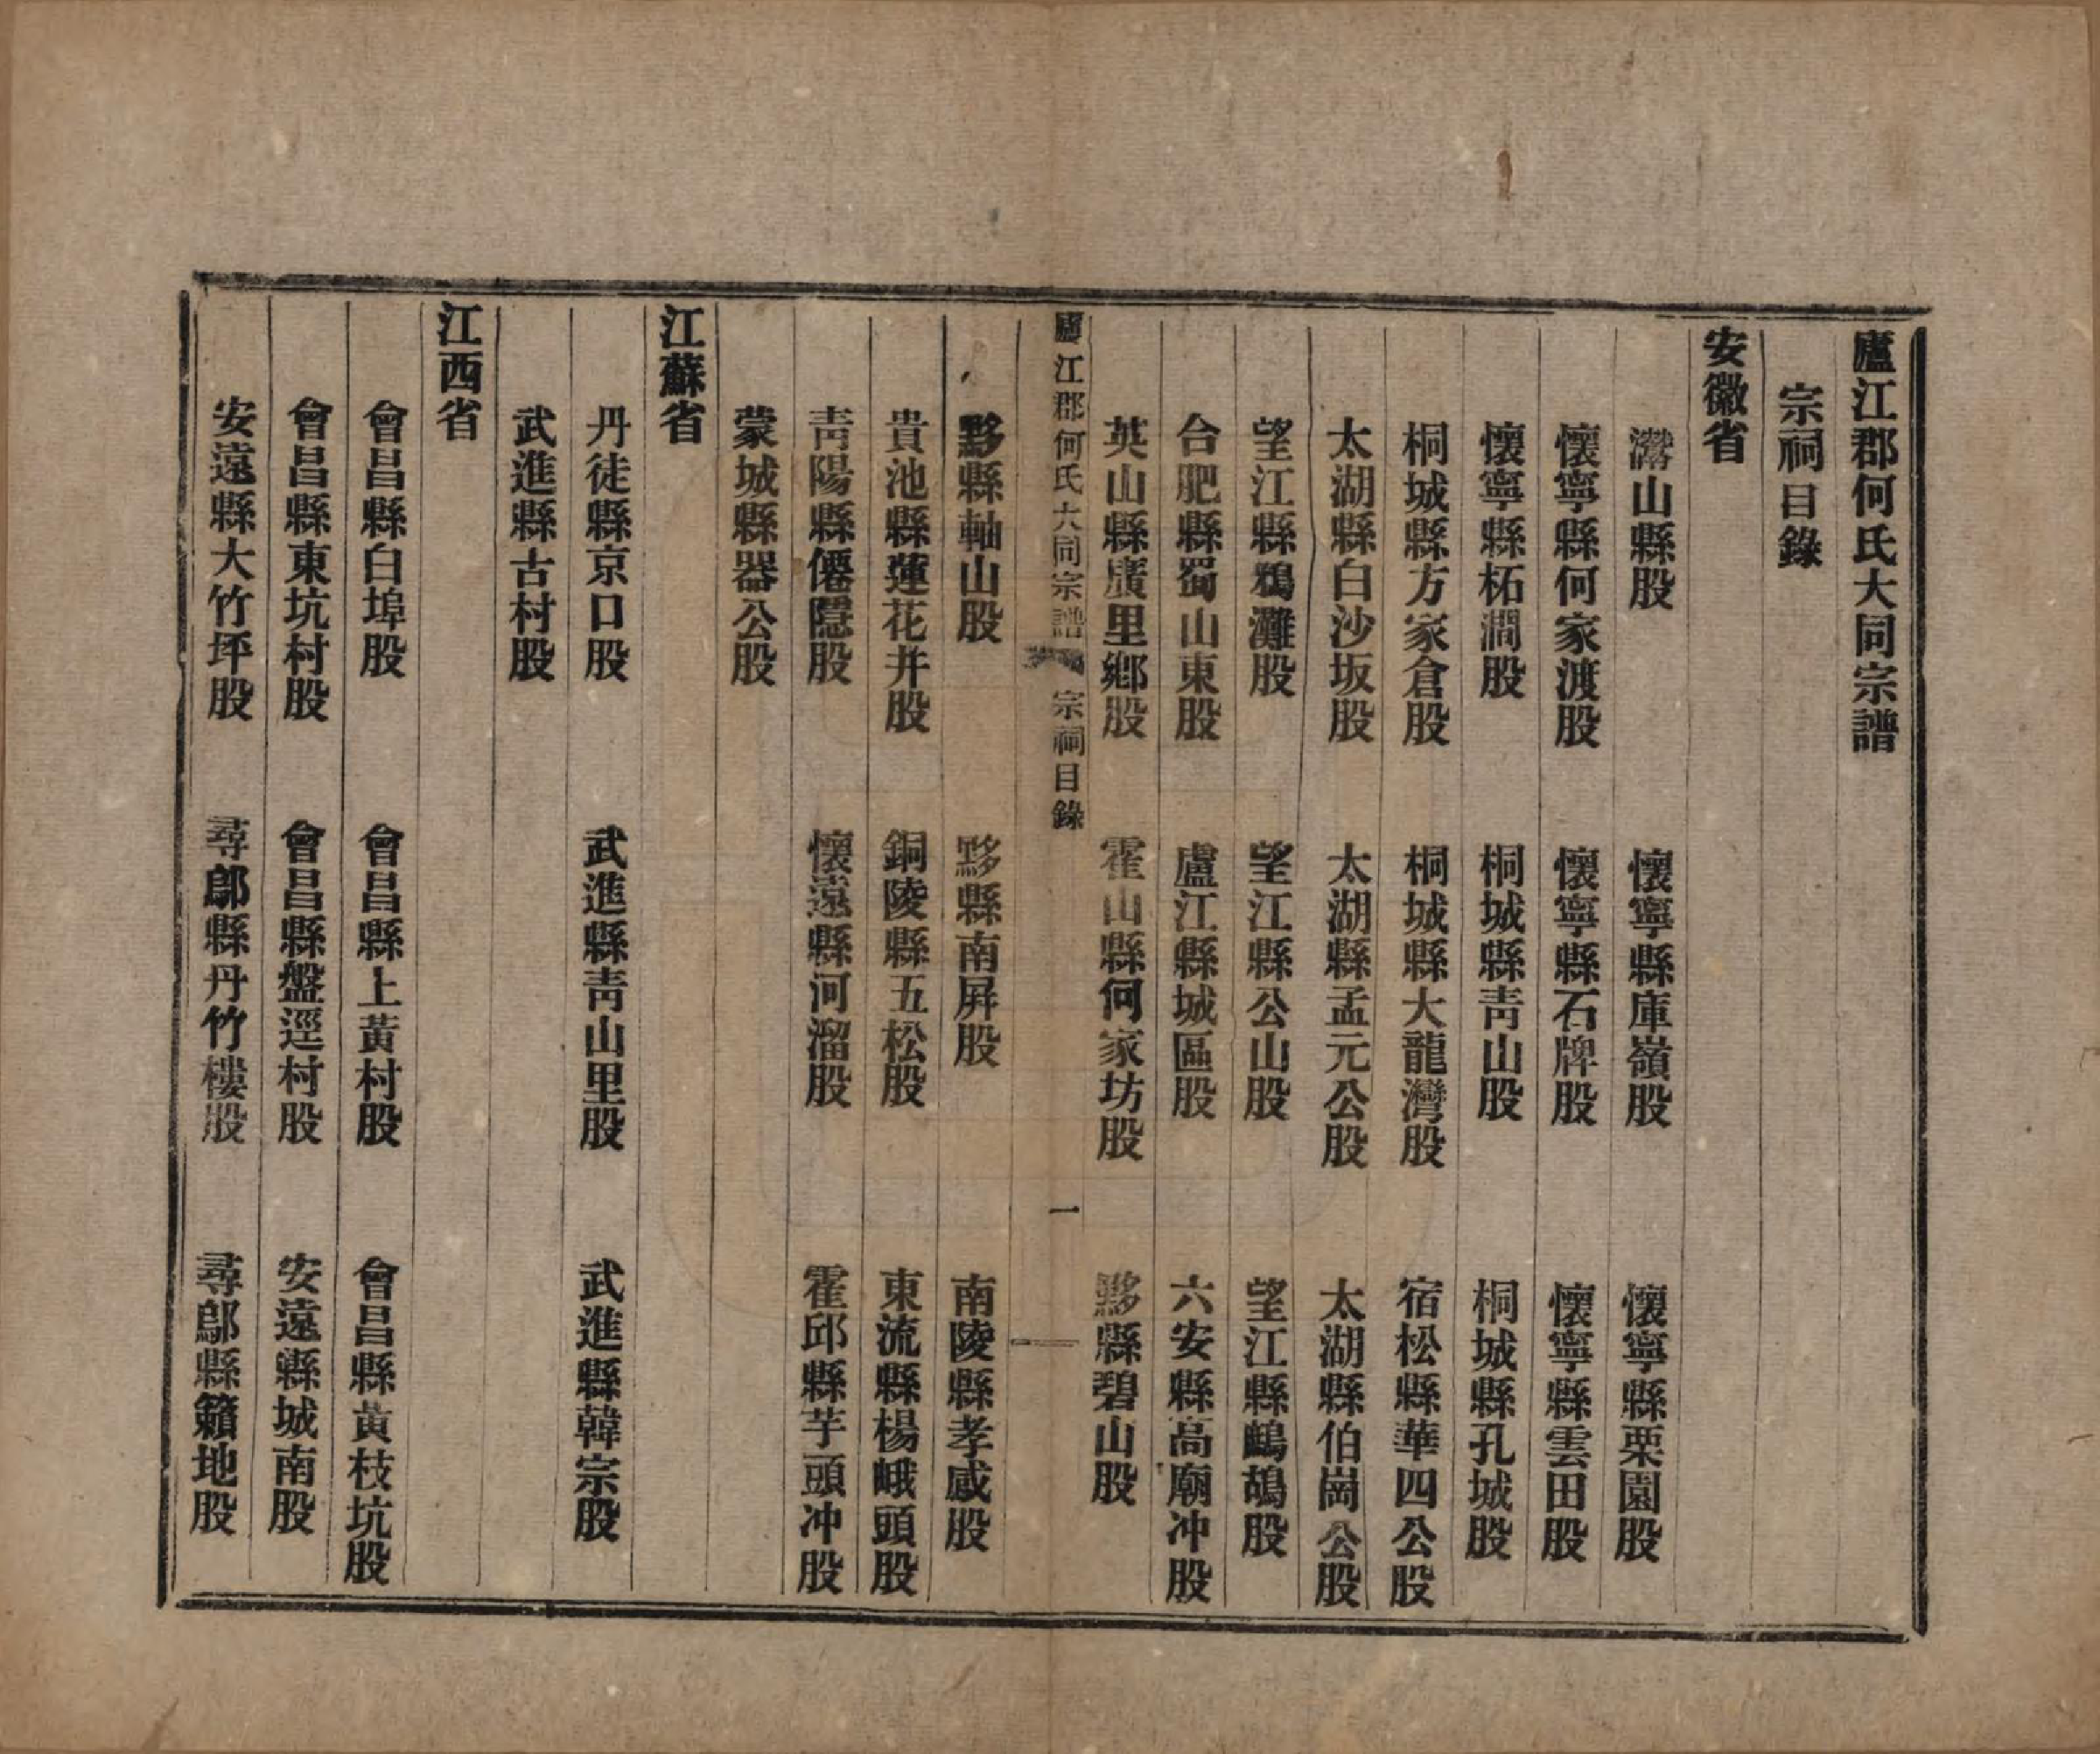 廬江郡何氏大同宗譜
宗祠目錄
安徽省
灊山縣股　懷寧縣庫嶺股　懷寧縣栗園股
懷寧縣何家渡股　懷寧縣石牌股　懷寧縣雲田股
懷寧縣柘澗股　桐城縣青山股　桐城縣孔城股
桐城縣方家倉股　桐城縣大龍灣股　宿松縣華四公股
太湖縣白沙坂股　太湖縣孟元公股　太湖縣伯崗公股
望江縣鴉灘股　望江縣公山股　望江縣鷓鴣股
合肥縣蜀山東股　廬江縣城區股　六安縣高廟冲股
英山縣廣里鄉股　霍山縣何家坊股　黟縣碧山股
廬江郡何氏大同宗譜　宗祠目錄　一
黟縣軸山股　黟縣南屏股　南陵縣孝感股
貴池縣蓮花井股　銅陵縣五松股　東流縣楊峨頭股
青陽縣僊隱股　懷遠縣河溜股　霍邱縣芋頭冲股
蒙城縣器公股
江蘇省
丹徒縣京口股　武進縣青山里股　武進縣韓宗股
武進縣古村股
江西省
會昌縣白埠股　會昌縣上黃村股　會昌縣黃枝坑股
會昌縣東坑村股　會昌縣盤逕村股　安遠縣城南股
安遠縣大竹坪股　尋鄔縣丹竹樓股　尋鄔縣籟地股